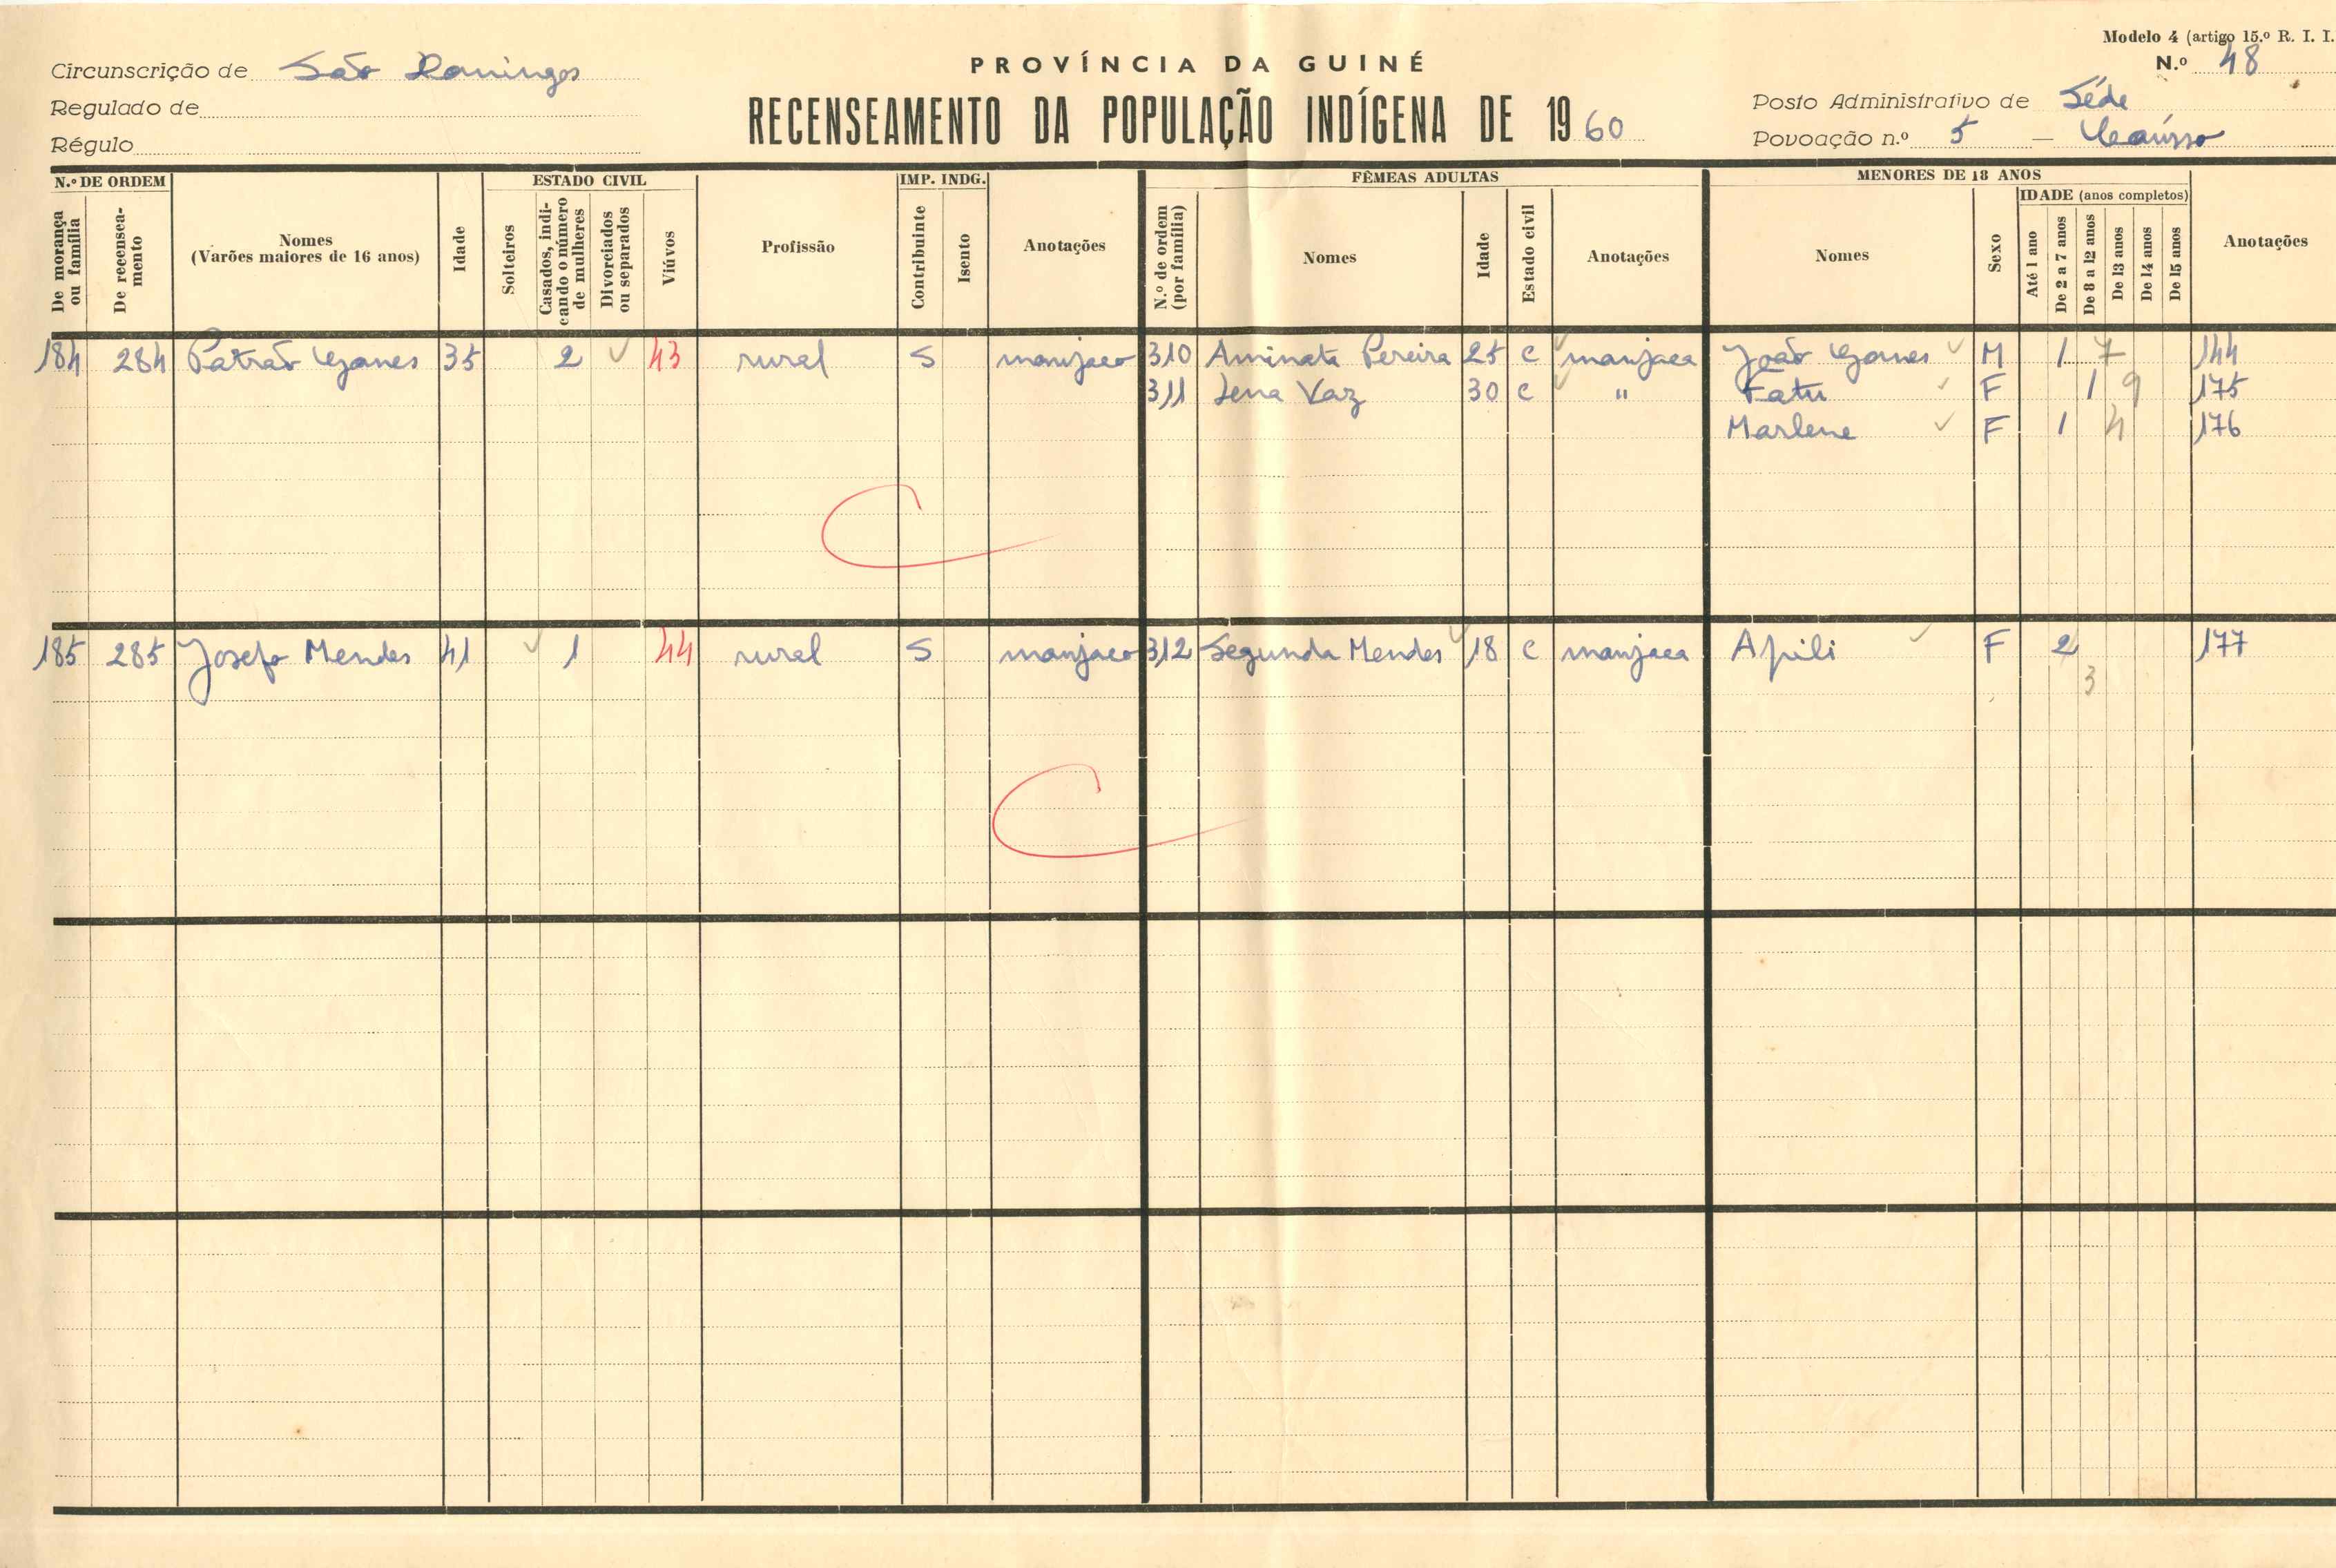 Modelo 4 (artigo 15.º R. I. I.
N.º 48
Circunscrição de São Domingos
PROVÍNCIA DA GUINÉ
Regulado de
RECENSEAMENTO DA POPULAÇÃO INDÍGENA DE 1960
Posto Administrativo de Séde
Régulo
Povoação n.º 5 —
N.º DE ORDEM
De morança ou família
De recensea-mento
Nomes
(Varões maiores de 16 anos)
Idade
ESTADO CIVIL
Solteiros
Casados, indi-cando o número de mulheres
Divorciados ou separados
Viúvos
Profissão
IMP. INDG.
Contribuinte
Isento
Anotações
FÊMEAS ADULTAS
N.º de ordem (por família)
Nomes
Idade
Estado civil
Anotações
MENORES DE 18 ANOS
Nomes
Sexo
IDADE (anos completos)
Até 1 ano
De 2 a 7 anos
De 8 a 12 anos
De 13 anos
De 14 anos
De 15 anos
Anotações
184 284 Patrão Gomes 35 2 ✓ 43 rural S manjaco 310 Aminata Pereira 25 C ✓ manjaca João Gomes ✓ M 1 7 144
311 Lena Vaz 30 C ✓ " Fatu ✓ F 1 9 175
Marlene ✓ F 1 4 176
185 285 Josefo Mendes 41 ✓ 1 44 rural S manjaco 312 Segunda Mendes ✓ 18 C manjaca Apili ✓ F 2 177
3